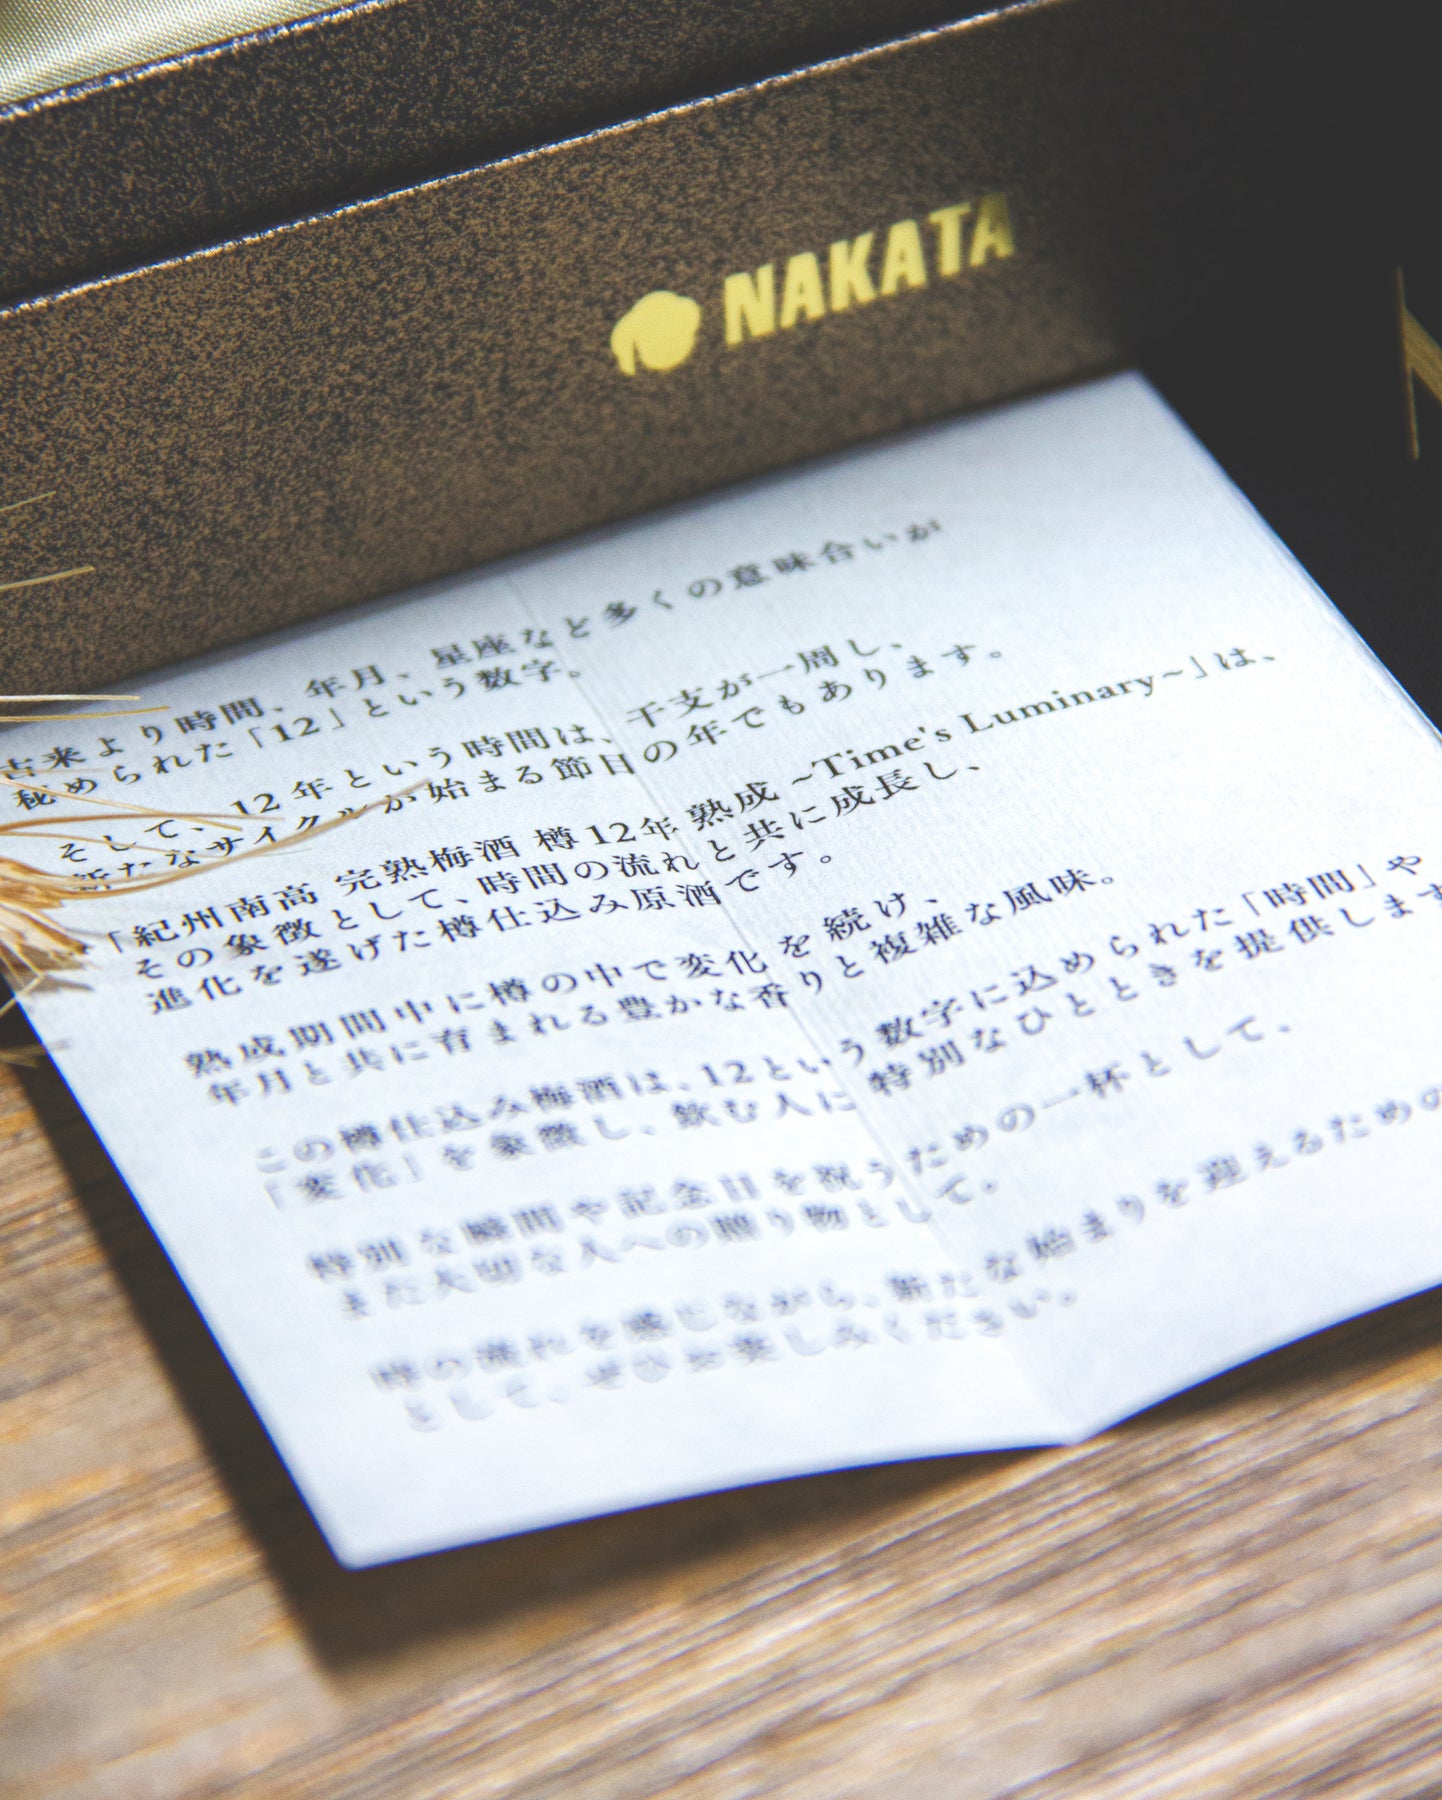 NAKATA
古来より時間、年月、星座など多くの意味合いが
秘められた「12」という数字。
そして、12年という時間は、干支が一周し、
新たなサイクルが始まる節目の年でもあります。
「紀州南高 完熟梅酒 樽12年熟成 ~Time's Luminary~」は、
その象徴として、時間の流れと共に成長し、
進化を遂げた樽仕込み原酒です。
熟成期間中に樽の中で変化を続け、
年月と共に育まれる豊かな香りと複雑な風味。
この樽仕込み梅酒は、12という数字に込められた「時間」や
「変化」を象徴し、飲む人に特別なひとときを提供します
特別な瞬間や記念日を祝うための一杯として、
また大切な人への贈り物として。
時の流れを感じながら、新たな始まりを迎えるための
として、ぜひお楽しみください。